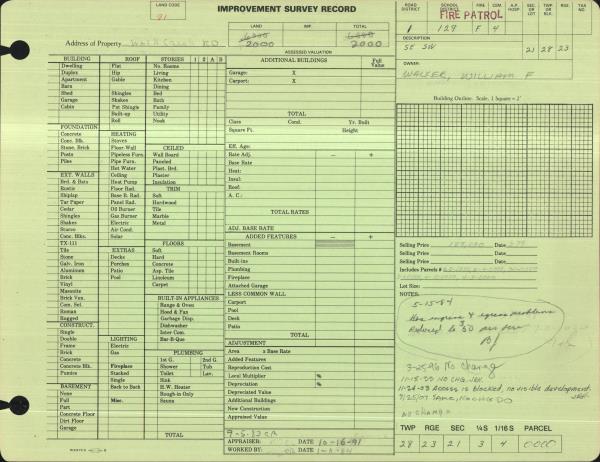 LAND CODE
91
IMPROVEMENT SURVEY RECORD
LAND IMP. TOTAL
2000 2000
Address of Property
ASSESSED VALUATION
ROAD DISTRICT SCHOOL DISTRICT FIRE COM A.P. HOSP.
FIRE PATROL
1 129 F 4
DESCRIPTION
SE SW 21 28 23
OWNER:
WALKER, WILLIAM F
Building Outline: Scale, 1 Square = 2'
BUILDING ROOF STORIES 1 2 A B
Dwelling Flat No. Rooms
Duplex Hip Living
Apartment Gable Kitchen
Barn Dining
Shed Shingles Bed
Garage Shakes Bath
Cabin Pat Shingle Family
Built-up Utility
Roll Nook
FOUNDATION
Concrete HEATING
Conc. Blk. Stoves CEILED
Stone, Brick Floor Wall Wall Board
Posts Pipeless Furn. Paneled
Piers Pipe Furn. Plast. Brd.
Hot Water Plaster
EXT. WALLS Ceiling Insulation
Brd. & Bats Heat Pump TRIM
Rustic Floor Rad. Soft
Shiplap Base B. Rad. Hardwood
Tar Paper Panel Rad. Tile
Cedar Oil Burner Marble
Shingles Gas Burner Metal
Shakes Electric
Stucco Air Cond.
Conc. Blks. Solar FLOORS
TX-111 Soft
Tile EXTRAS Hard
Stone Decks Concrete
Galv. Iron Porches Asp. Tile
Aluminum Patio Linoleum
Brick Pool Carpet
Vinyl
Masonite
Brick Ven. BUILT-IN APPLIANCES
Com. Sel. Range & Oven
Roman Hood & Fan
Ragged Garbage Disp.
CONSTRUCT. Dishwasher
Single Inter Com.
Double LIGHTING Bar-B-Que
Frame Electric
Brick Gas PLUMBING
Concrete 1st G. 2nd G.
Concrete Blk. Fireplace Shower Tub
Pumice Stacked Toilet Lav.
Single Sink
BASEMENT H.W. Heater
None Rough-in Only
Full Misc. Sauna
Part
Concrete Floor
Dirt Floor
Garage TOTAL
ADDITIONAL BUILDINGS Full Value
Garage: X
Carport: X
TOTAL
Class Cond. Yr. Built
Square Ft. Height
Eff. Age:
Rate Adj. — +
Base Rate
Heat:
Insul:
Roof:
A. C.:
TOTAL RATES
ADJ. BASE RATE
ADDED FEATURES — +
Basement
Basement Rooms
Built-ins
Plumbing
Fireplace
Attached Garage
LESS COMMON WALL
Carport
Pool
Deck
Patio
TOTAL
ADJUSTMENT
Area x Base Rate
Added Features
Reproduction Cost
Local Multiplier %
Depreciation %
Depreciated Value
Additional Buildings
New Construction
Appraised Value
APPRAISER: DATE 10-16-91
WORKED BY: DATE
Selling Price
Selling Price
Includes Parcels #
Lot Size:
NOTES:
5-15-84
Has ingress & egress problems
Reduced to 50 per
3-25-96 No Change
11-15-00 NO CHG. JEK
11-24-03 Access is blocked, no visible development. JEK
9/25/07 Same,
NO CHANGE
TWP RGE SEC ¼S 1/16 S PARCEL
28 23 21 3 4 0000